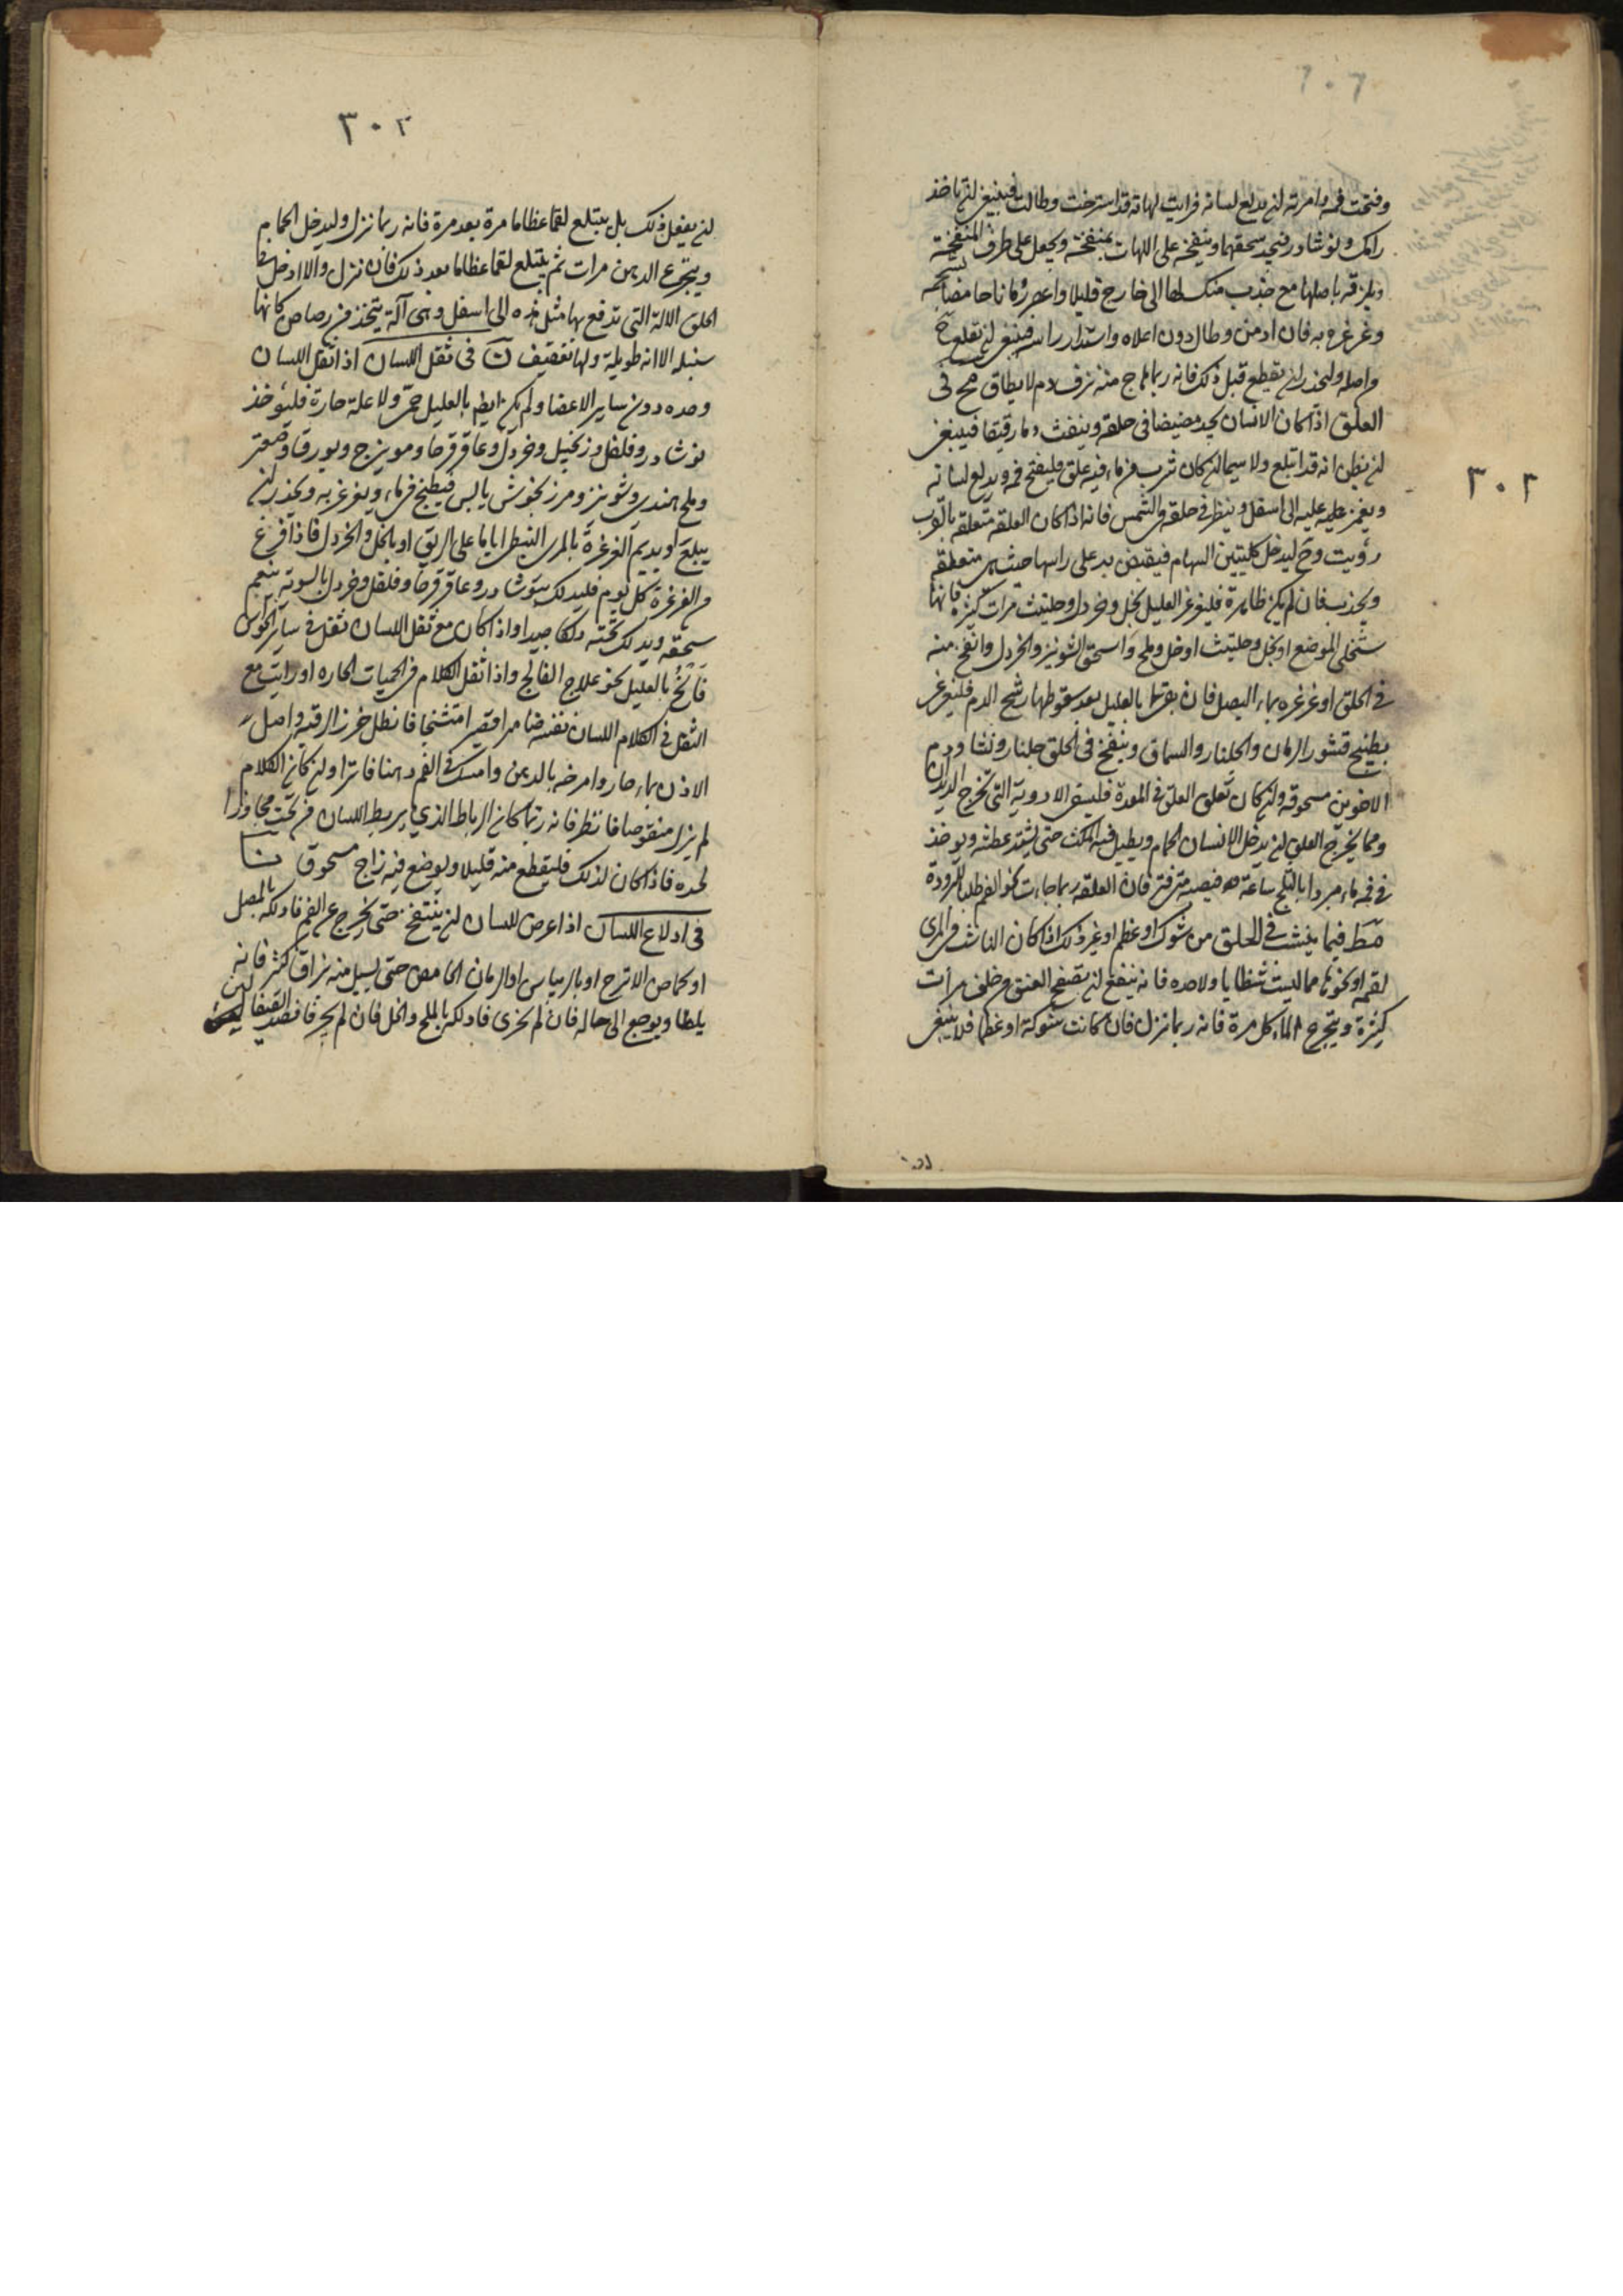 وفتحت فمه وامرته لن يدلع لسانه فرايت لهاته قد استرخت وطالت فينبغي لن ياخذ
رامك ونوشادر فيجيد سحقهما وينفخه على اللهات بمنفخة ويجعل على طرف المنفخة
ويلزقه باصلها مع جذب منك لها الى خارج قليلا واعصر رمانا حامضا بشحمه
وغرغره به فان ادمن وطال دون اعلاه واستدار راسه فينبغي لن تقطع ح
واصله وليحذر لن يقطع قبل ذلك فانه ربما هاج منه نزف دم لا يطاق مح في
العلق اذا كان الانسان يجد مضيضا في حلقه وينفث دما رقيقا فينبغي
لن يظن انه قد ابتلع ولا سيما لن كان شرب من ماء فيه علق فليفتح فمه ويدلع لسانه
ويغمز عليه الى اسفل وينظر في حلقه في الشمس فانه اذا كان العلقة متعلقه بالقرب
رؤيت وح ليدخل كلبتين السهام فيقبض به على راسها حيث هي متعلقه
ويجذب فان لم يكن ظاهرة فليغرغر العليل بخل وخردل وحلتيث مرات كثيرة فانها
ستخلي الموضع او بخل وحلتيث او خل وملح واسحق الشونيز والخردل وانفخ منه
في الحلق او غرغره بماء البصل فان بقي بالعليل بعد سقوطها رشح الدم فليغرغر
بطبيخ قشور الرمان والجلنار والسماق وينفخ في الحلق جلنار ونشا ودم
الاخوين مسحوقه ولن كان تعلق العلق في المعدة فليسقى الادوية التي تخرج الديدان
ومما يخرج العلق لن يدخل الانسان الحمام ويطيل فيه المكث حتى يشتد عطشه ويوخذ
في فمه ماء مبردا بالثلج ساعة فان العلقه ربما جاءت نحو الفم طلبا للبرودة
مط فيما ينشب في الحلق من شوك او عظم او غير ذلك اذا كان الناشب في المري
لقمه او نحوها مما ليست شظايا ولا حده فانه ينفع لن يصفع العنق من خلف مرات
كثيرة ويتجرع الماء كل مرة فانه ربما نزل فان كانت شوكة او عظما فلا ينبغي
٣٠٢
٣٠٣
لن يفعل ذلك بل يبتلع لقما عظاما مرة بعد مرة فانه ربما نزل وليدخل الحمام
ويتجرع الدهن مرات ثم يبتلع لقما عظاما بعد ذلك فان نزل والا ادخل في
الحلق الالة التي تدفع بها مثل هذه الى اسفل وهي آلة يتخذ من رصاص كانها
سنبله الا انه طويلة ولها تعقيف ن في ثقل اللسان اذا ثقل اللسان
وحده دون ساير الاعضا ولم يكن ايضا بالعليل حمى ولا علة حارة فليؤخذ
نوشادر وفلفل وزنجبيل وخردل وعاقرقرحا وموينزج وبورق وصعتر
وملح هندي وشونيز ومرزنجوش يابس فيطبخ في ماء ويغرغر به ويحذر لن
يبلع او يديم الغرغرة بالمري النبطي اياما على الريق او بالخل والخردل فاذا فرغ
من الغرغرة كل يوم فليدلك بنوشادر وعاقرقرحا وفلفل وخردل بالسوية ينعم
سحقه ويدلك تحته دلكا جيدا واذا كان مع ثقل اللسان ثقل في ساير الحواس
فانح بالعليل نحو علاج الفالج واذا ثقل الكلام في الحميات الحاره او رايت مع
الثقل في الكلام اللسان نفسه ضامرا قصيرا متشنجا فانطل خرز الرقبه واصل
الاذن بماء حار وامرخه بالدهن وامسك في الفم دهنا فاترا ولن كان الكلام
لم يزل منقوصا فانظر فانه ربما كان الرباط الذي يربط اللسان من تحت مجاوزا
لحده فاذا كان لذلك فليقطع منه قليلا ويوضع فيه زاج مسحوق نا
في ادلاع اللسان اذا عرض للسان لن ينتفخ حتى يخرج عن الفم فادلكه بالمصل
او بحماض الاترج او بالريباس او الرمان الحامض حتى يسيل منه بزاق كثير فانه
يلطا ويرجع الى حاله فان لم يجزى فادلكه بالملح والخل فان لم يجز فافصد القيفال